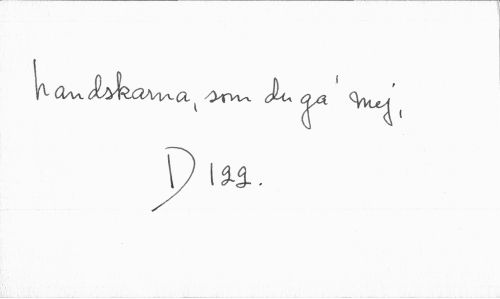 handskarna, som du ga' mej,
D 122.